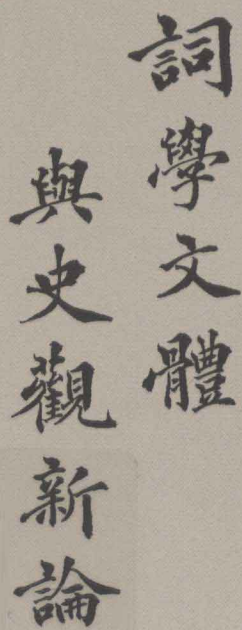 詞學文體
與史觀新論